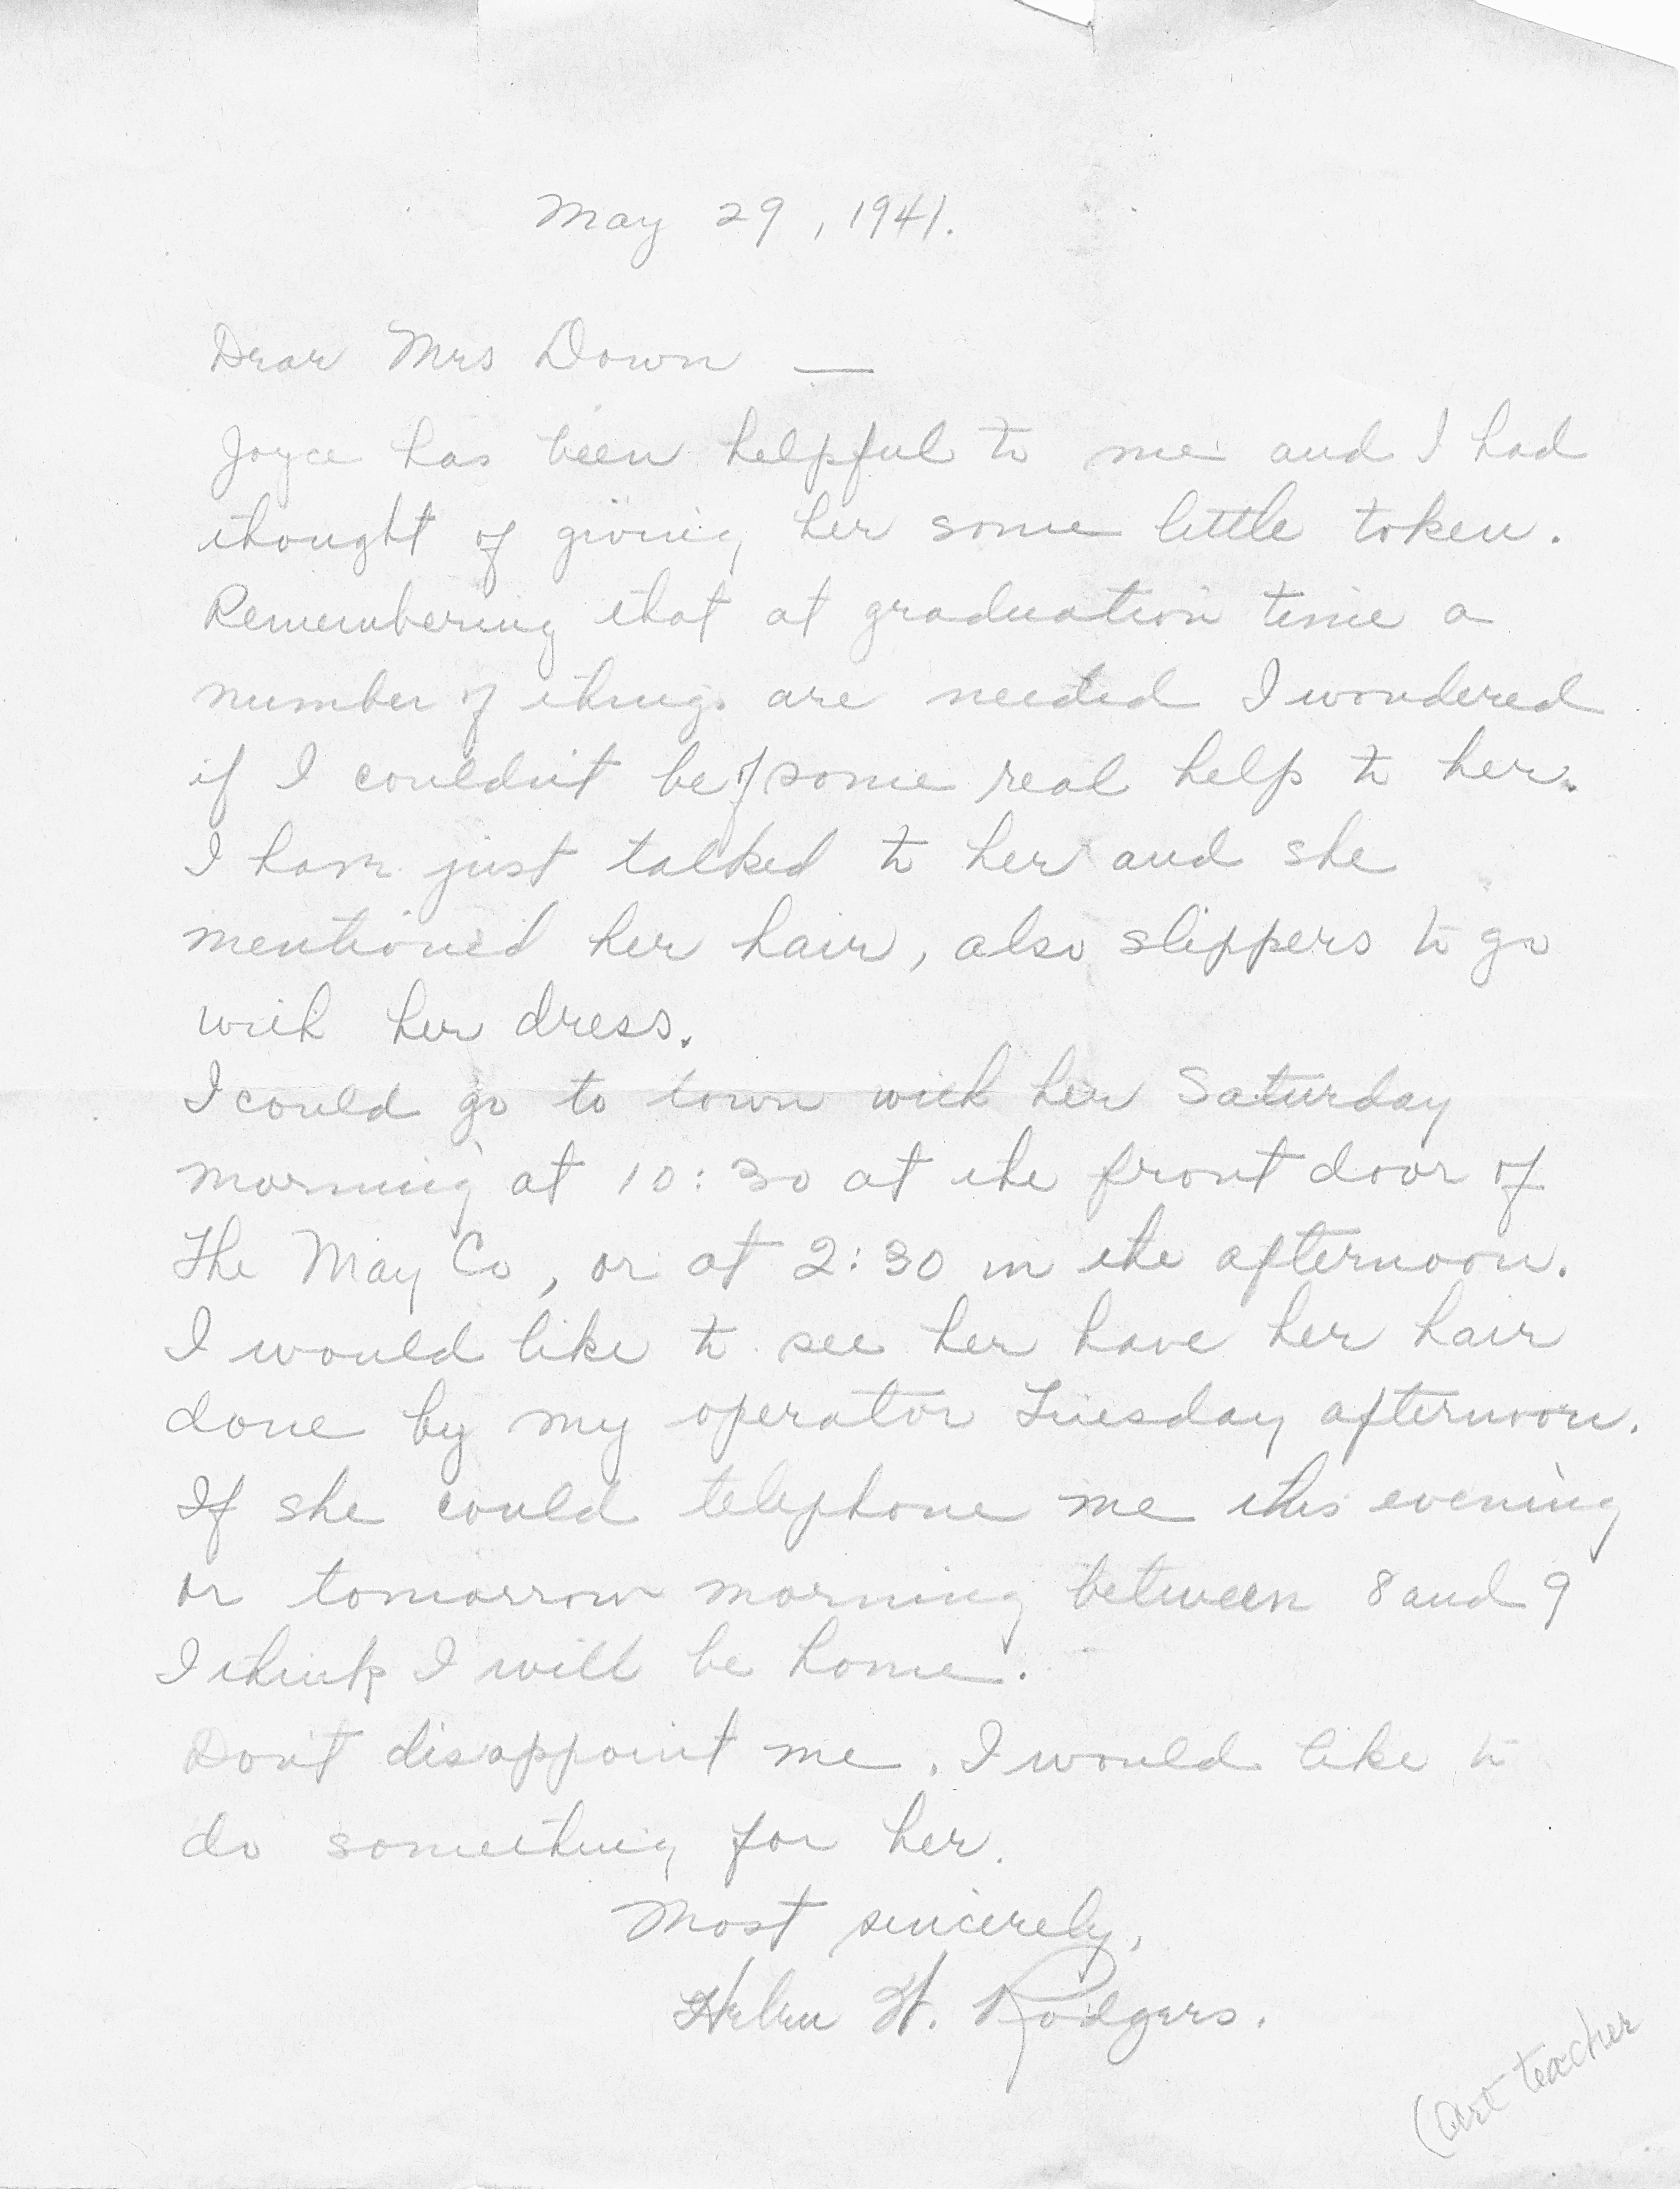 May 29, 1941.
Dear Mrs Down —
Joyce has been helpful to me and I had
thought of giving her some little token.
Remembering that at graduation time a
number of things are needed I wondered
if I couldn't be of some real help to her.
I have just talked to her and she
mentioned her hair, also slippers to go
with her dress.
I could go to town with her Saturday
morning at 10:30 at the front door of
The May Co, or at 2:30 in the afternoon.
I would like to see her have her hair
done by my operator Tuesday afternoon.
If she could telephone me this evening
or tomorrow morning between 8 and 9
I think I will be home.
Don't disappoint me. I would like to
do something for her.
Most sincerely,
Helen H. Rodgers.
(Art teacher